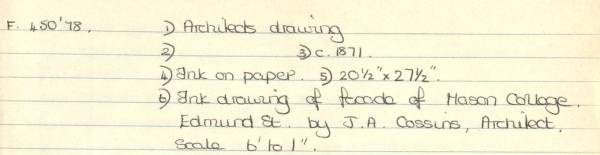 F. 450'78. 1) Architects drawing
2) 3) c. 1871.
4) Ink on paper. 5) 20½" x 27½".
6) Ink drawing of facade of Mason College,
Edmund St. by J.A. Cossins, Architect.
Scale 6' to 1".